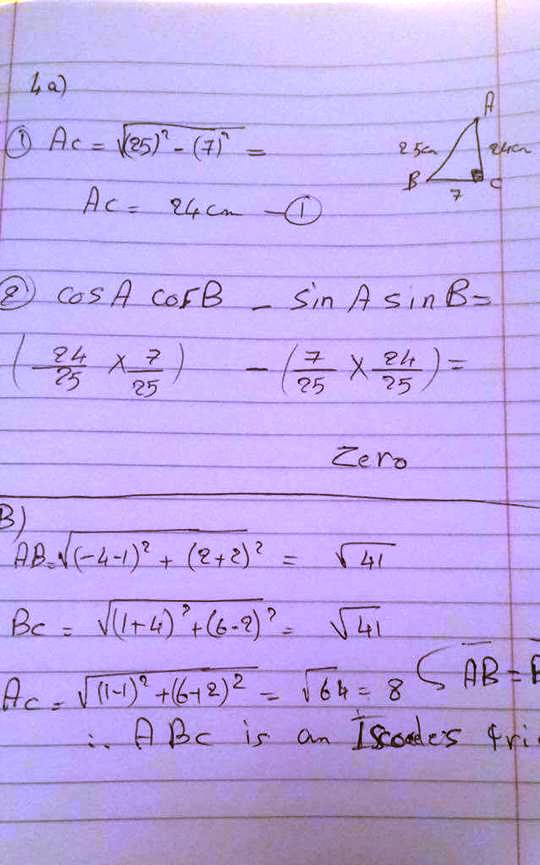 4a)
① Ac = √(25)² - (7)² =
Ac = 24cm — ①
A
25cm
24cm
B
7
C
② cosA cosB - sin A sin B =
(24/25 × 7/25) - (7/25 × 24/25) =
Zero
B)
AB = √(-4-1)² + (2+2)² = √41
Bc = √(1+4)² + (6-2)² = √41
Ac = √(1-1)² + (6+2)² = √64 = 8
AB =
∴ ABc is an